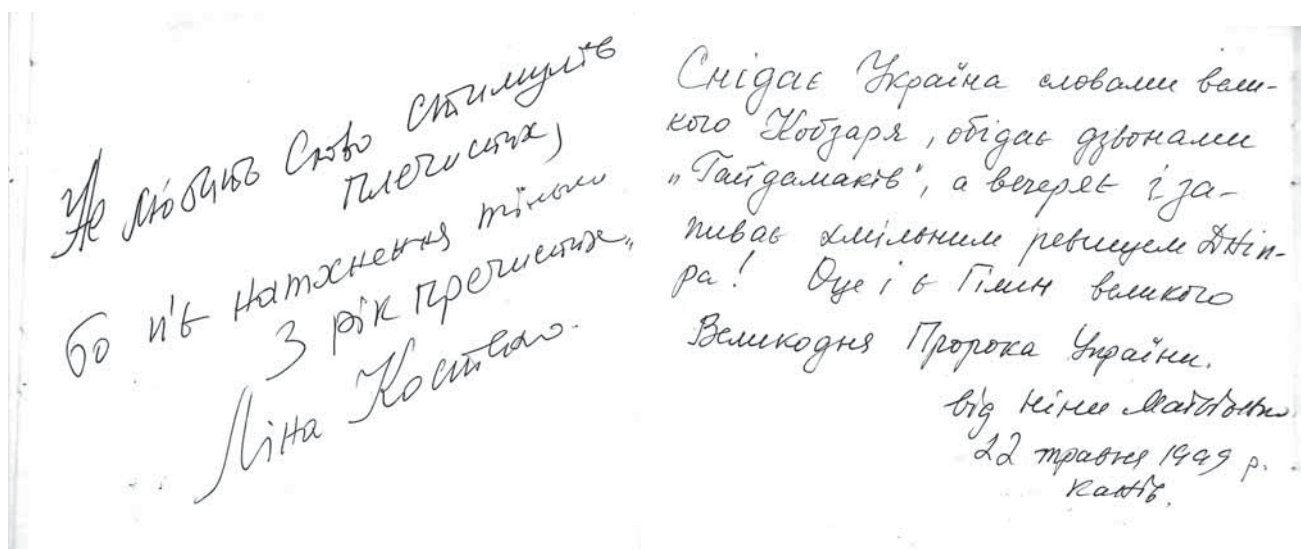 Не любить Слово стимулів
плечистих,
бо п'є натхнення тільки
З рік пречистих„
Ліна Костенко.
Снігає Україна словами вели-
кого Кобзаря, обідає дзвонами
„Гайдамаків", а вечеряє і за-
пиває хмільним ревищем Дніп-
ра! Оце і є Гімн великого
Великодня Пророка України.
від Ніни
22 травня 1999 р.
Канів.